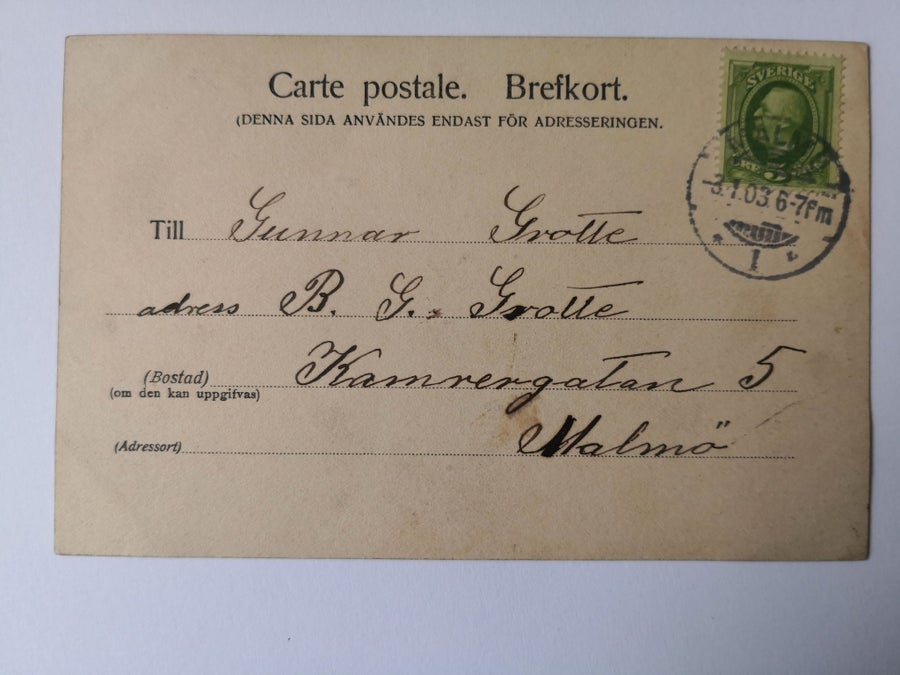 Carte postale. Brefkort.
(DENNA SIDA ANVÄNDES ENDAST FÖR ADRESSERINGEN.
SVERIGE
3.1.03 6-7 fm
1
Till Gunnar Grotte
adress B. G. Grotte
(Bostad) Kamrergatan 5
(om den kan uppgifvas)
(Adressort) Malmö